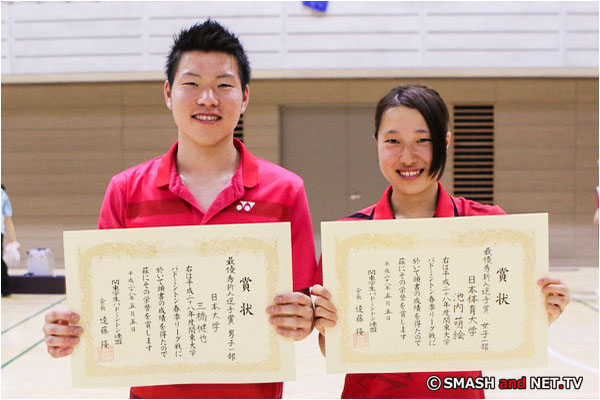 賞状
最優秀新人選手賞 男子一部
日本大学
三橋健也
右は平成二十八年度関東大学
バドミントン春季リーグ戦に
於いて頭書の成績を得たので
茲にその栄誉を賞します
平成二八年五月五日
関東学生バドミントン連盟
会長 遠藤 隆
賞状
最優秀新人選手賞 女子一部
日本体育大学
池内萌絵
右は平成二十八年度関東大学
バドミントン春季リーグ戦に
於いて頭書の成績を得たので
茲にその栄誉を賞します
平成二八年五月五日
関東学生バドミントン連盟
会長 遠藤 隆
YONEX
© SMASH and NET.TV